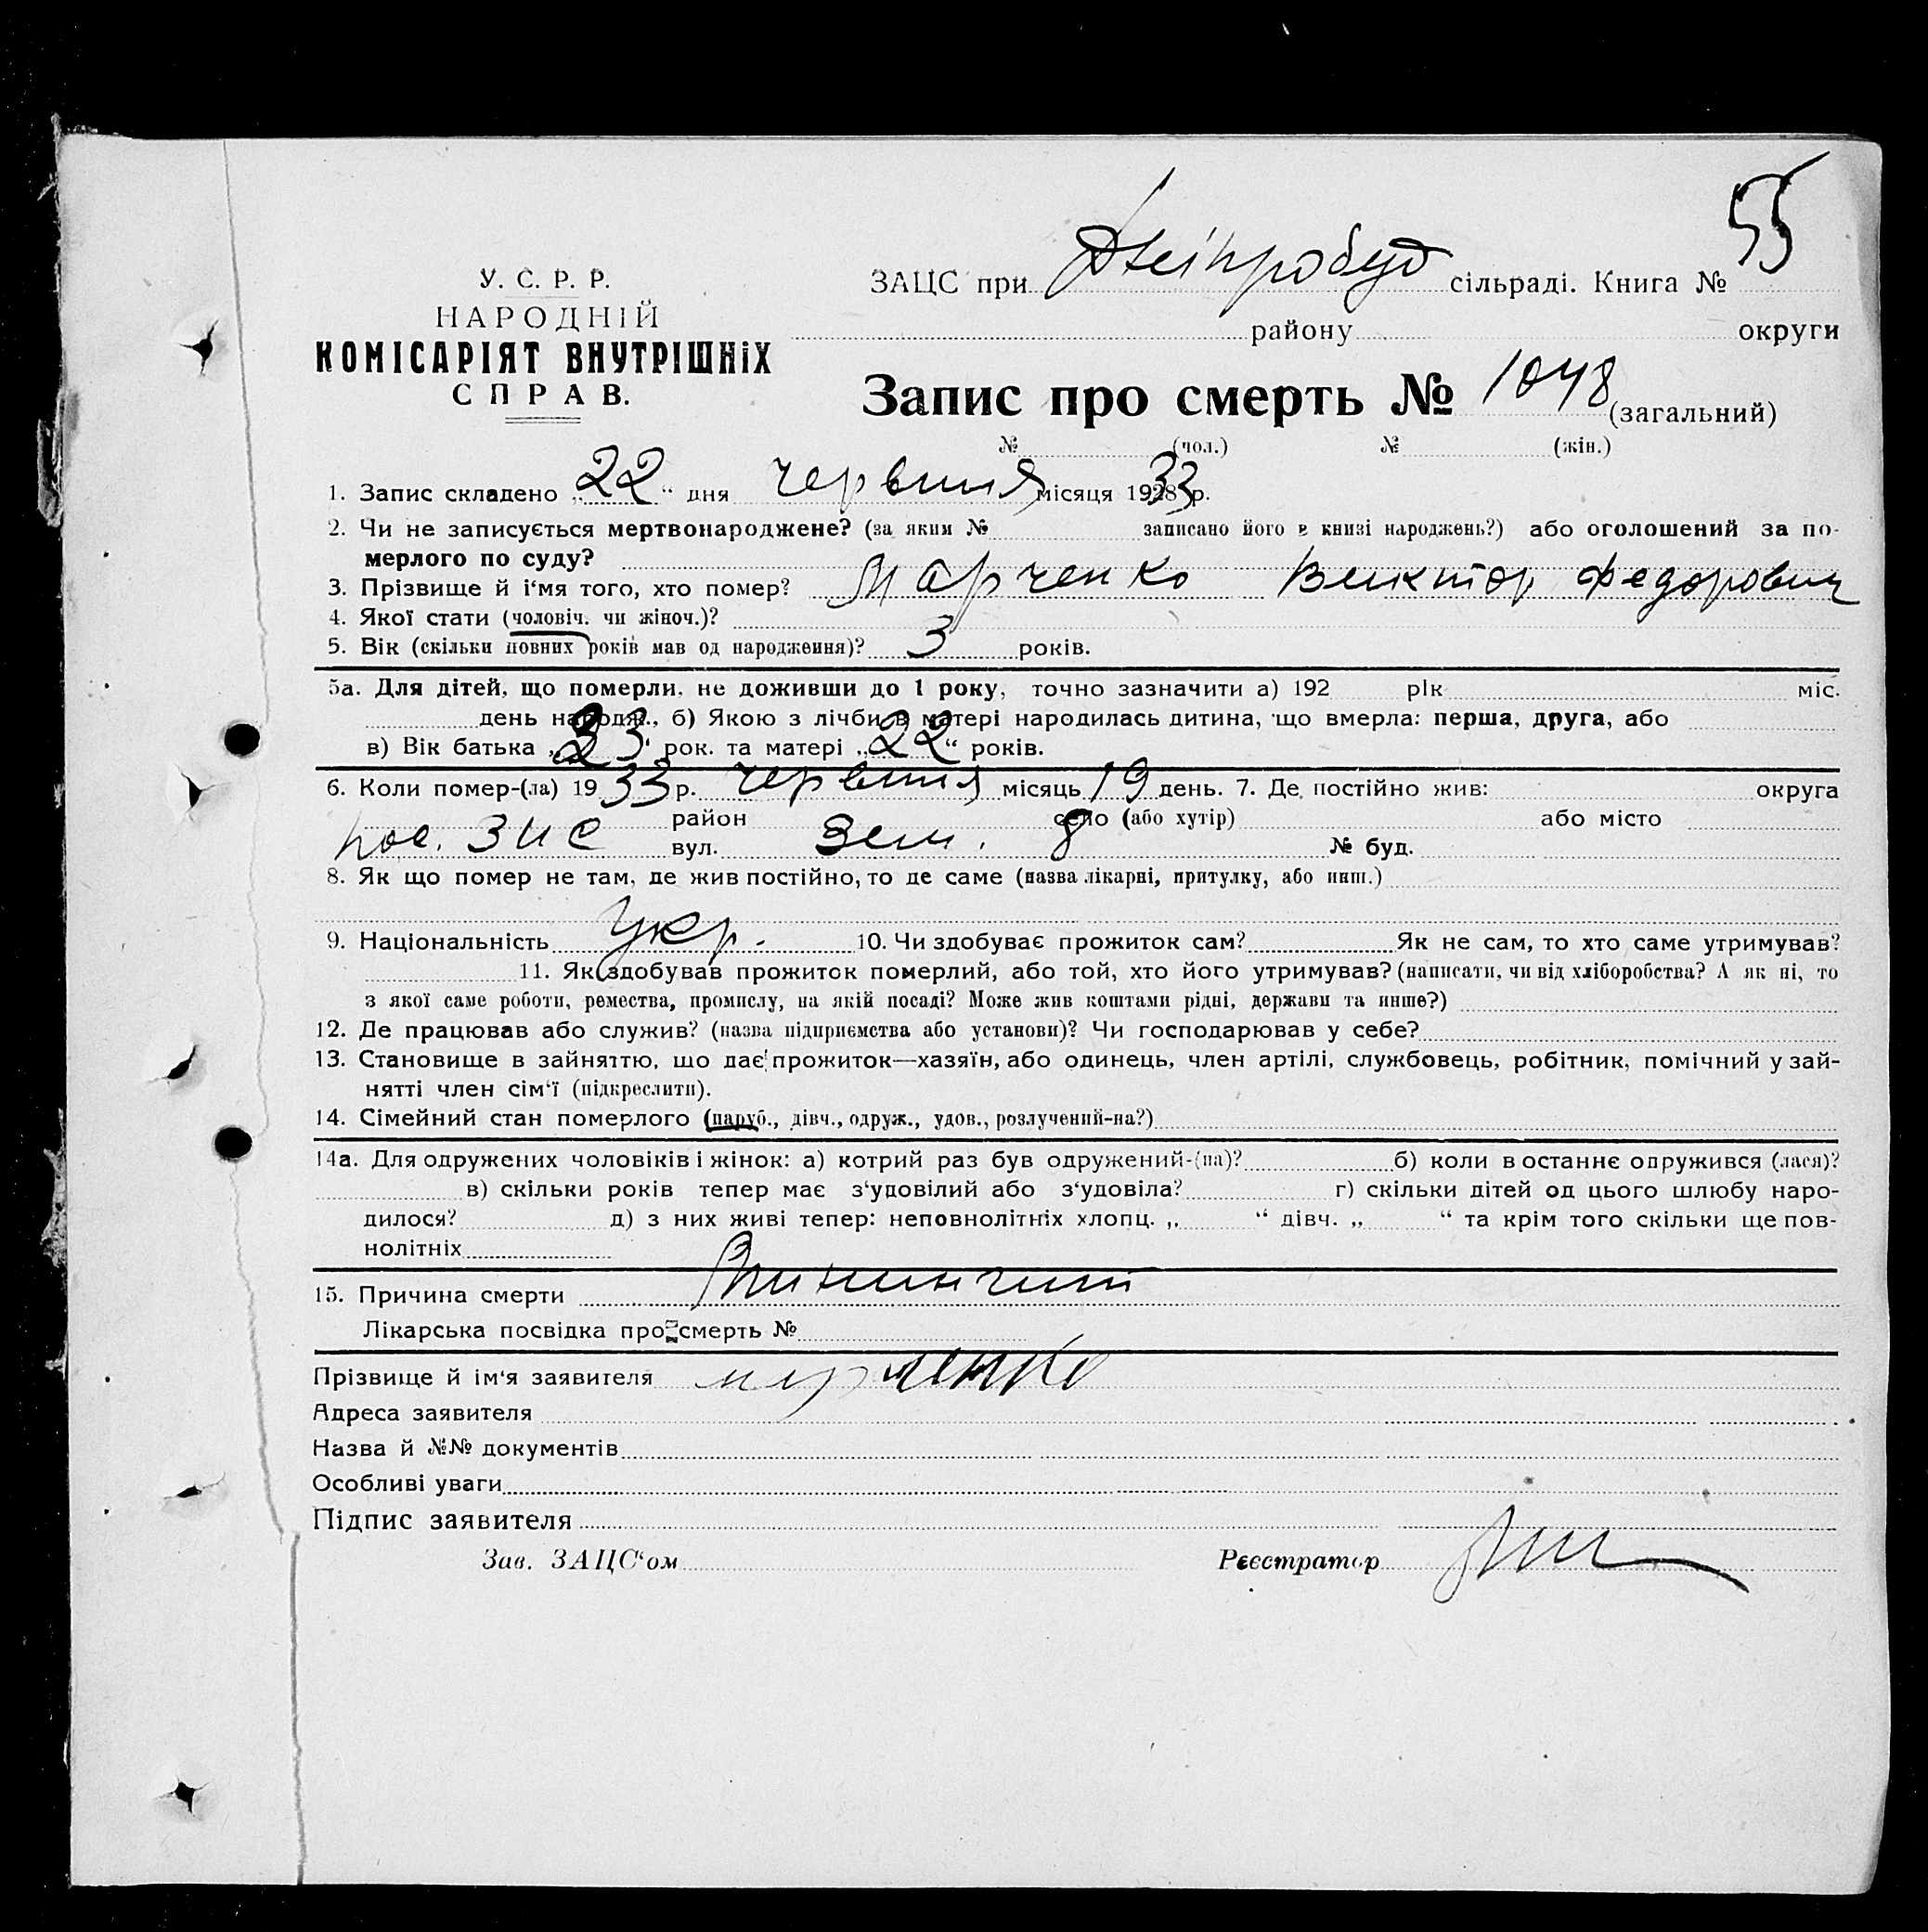 55
У. С. Р. Р.
НАРОДНІЙ
КОМІСАРІЯТ ВНУТРІШНІХ
СПРАВ.
ЗАЦС при Дніпробуд сільраді. Книга №
району округи
Запис про смерть № 1048 (загальний)
№ (чол.) № (жін.)
1. Запис складено „22“ дня червиня місяця 1933 р.
2. Чи не записується мертвонароджене? (за яким № записано його в книзі народжень?) або оголошений за по-
мерлого по суду?
3. Прізвище й і‘мя того, хто помер? Марченко Виктор Федорович
4. Якої стати (чоловіч. чи жіноч.)?
5. Вік (скільки повних років мав од народження)? 3 років.
5а. Для дітей, що померли, не доживши до 1 року, точно зазначити а) 192 рік міс.
день народж., б) Якою з лічби в матері народилась дитина, що вмерла: перша, друга, або
в) Вік батька „23“ рок. та матері „22“ років.
6. Коли помер-(ла) 1933 р. червиня місяць 19 день. 7. Де постійно жив: округа
район село (або хутір) або місто
пос. вул. 8 № буд.
8. Як що помер не там, де жив постійно, то де саме (назва лікарні, притулку, або инш.)
9. Національність Укр. 10. Чи здобуває прожиток сам? Як не сам, то хто саме утримував?
11. Як здобував прожиток померлий, або той, хто його утримував? (написати, чи від хліборобства? А як ні, то
з якої саме роботи, ремества, промислу, на якій посаді? Може жив коштами рідні, держави та инше?)
12. Де працював або служив? (назва підприємства або установи)? Чи господарював у себе?
13. Становище в зайняттю, що дає прожиток—хазяїн, або одинець, член артілі, службовець, робітник, помічний у зай-
нятті член сім‘ї (підкреслити).
14. Сімейний стан померлого (паруб., дівч., одруж., удов., розлучений-на?)
14а. Для одружених чоловіків і жінок: а) котрий раз був одружений-(на)? б) коли в останнє одружився (лася)?
в) скільки років тепер має з‘удовілий або з‘удовіла? г) скільки дітей од цього шлюбу наро-
дилося? д) з них живі тепер: неповнолітніх хлопц. „ “ дівч. „ “ та крім того скільки ще пов-
нолітніх
15. Причина смерти
Лікарська посвідка про смерть №
Прізвище й ім‘я заявителя марченко
Адреса заявителя
Назва й №№ документів
Особливі уваги
Підпис заявителя
Зав. ЗАЦС‘ом Реєстратор